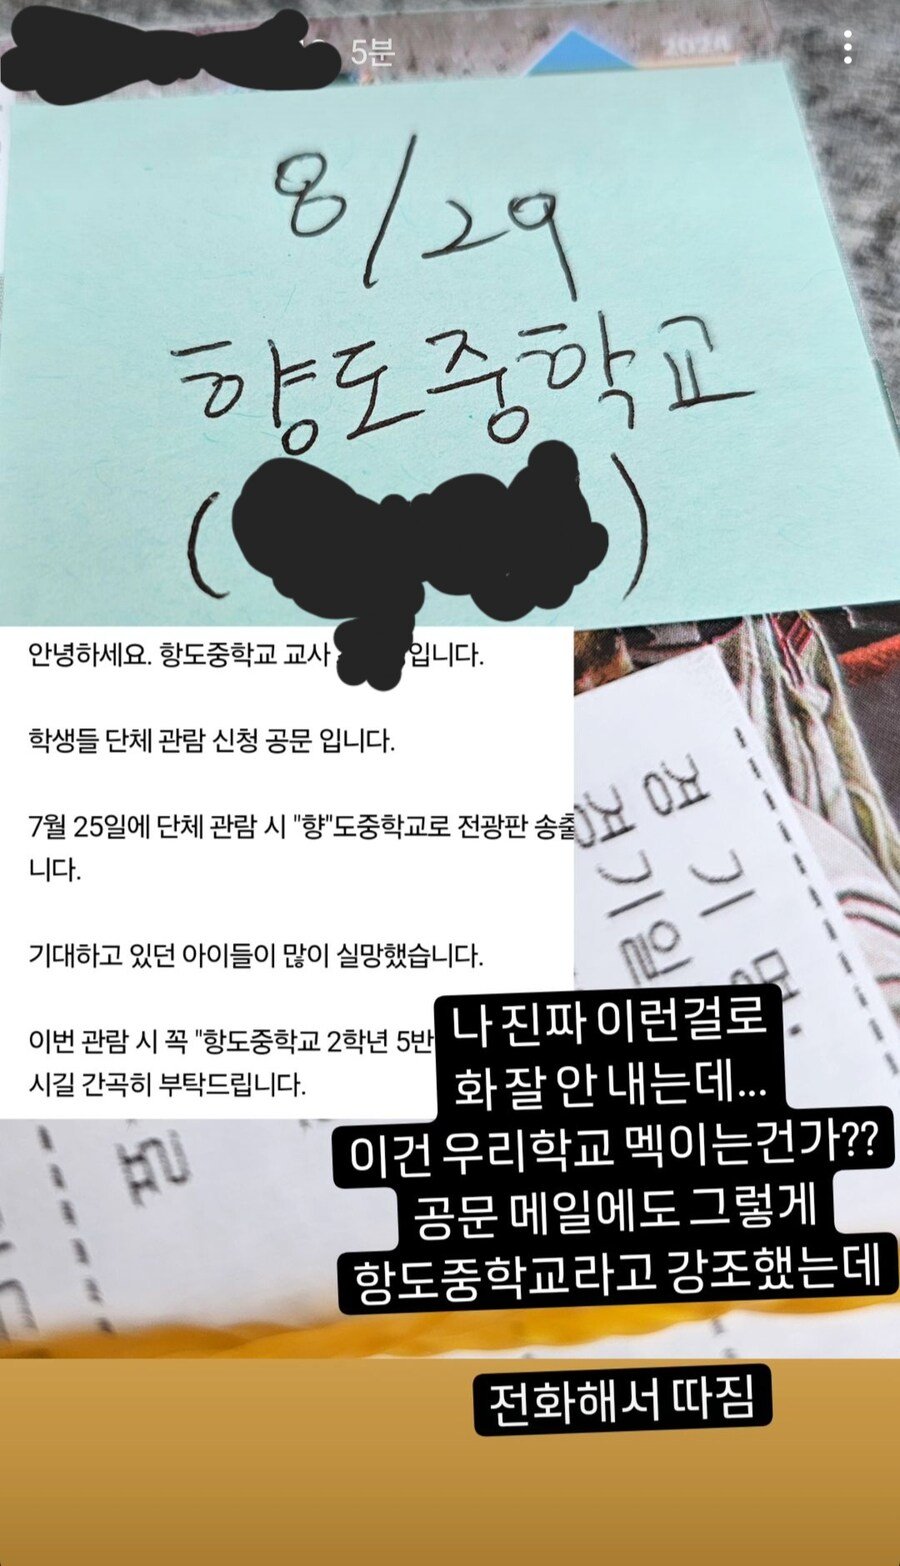 5분
2024
8/29
향도중학교
( )
안녕하세요. 항도중학교 교사 입니다.
학생들 단체 관람 신청 공문 입니다.
7월 25일에 단체 관람 시 "향"도중학교로 전광판 송출
니다.
기대하고 있던 아이들이 많이 실망했습니다.
이번 관람 시 꼭 "항도중학교 2학년 5반
시길 간곡히 부탁드립니다.
경 기 명
경기일
료
나 진짜 이런걸로
화 잘 안 내는데...
이건 우리학교 멕이는건가??
공문 메일에도 그렇게
항도중학교라고 강조했는데
전화해서 따짐